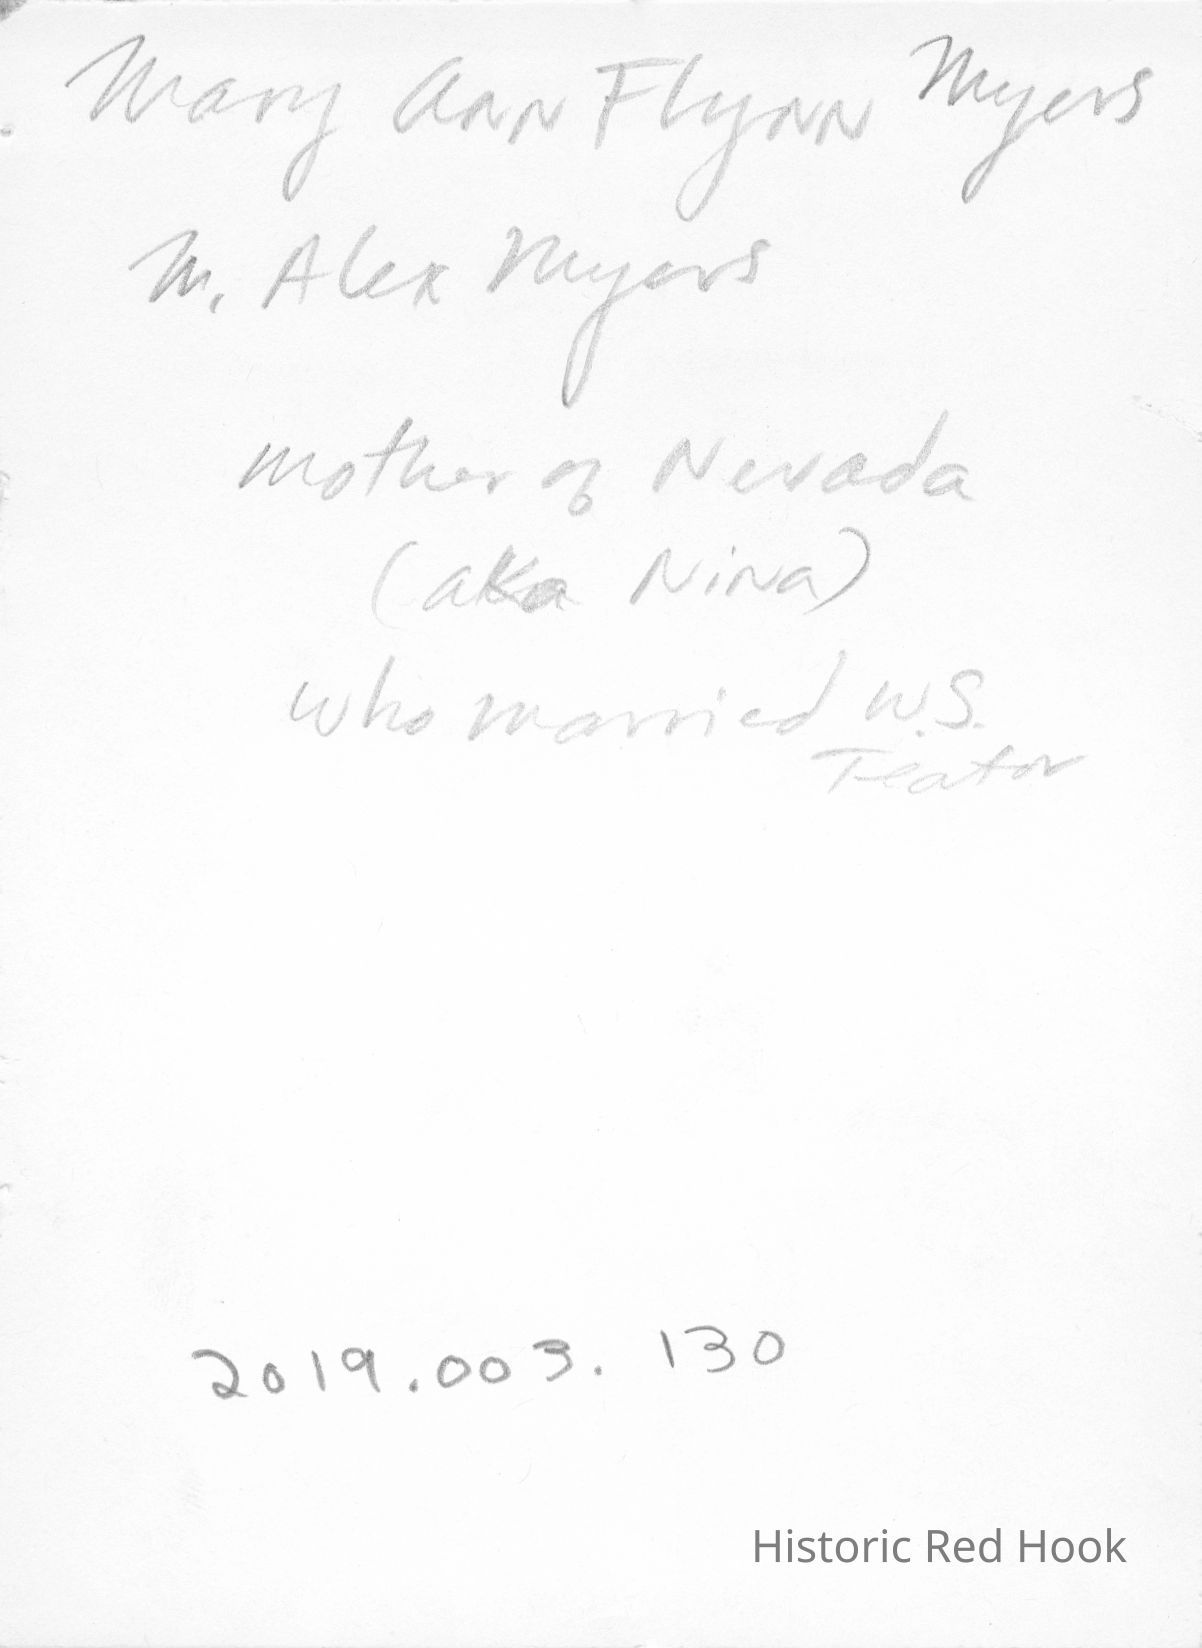 Mary Ann Flynn Myers
M. Alex Myers
mother of Nevada
(aka Nina)
who married W.S.
Teator
2019.003.130
Historic Red Hook